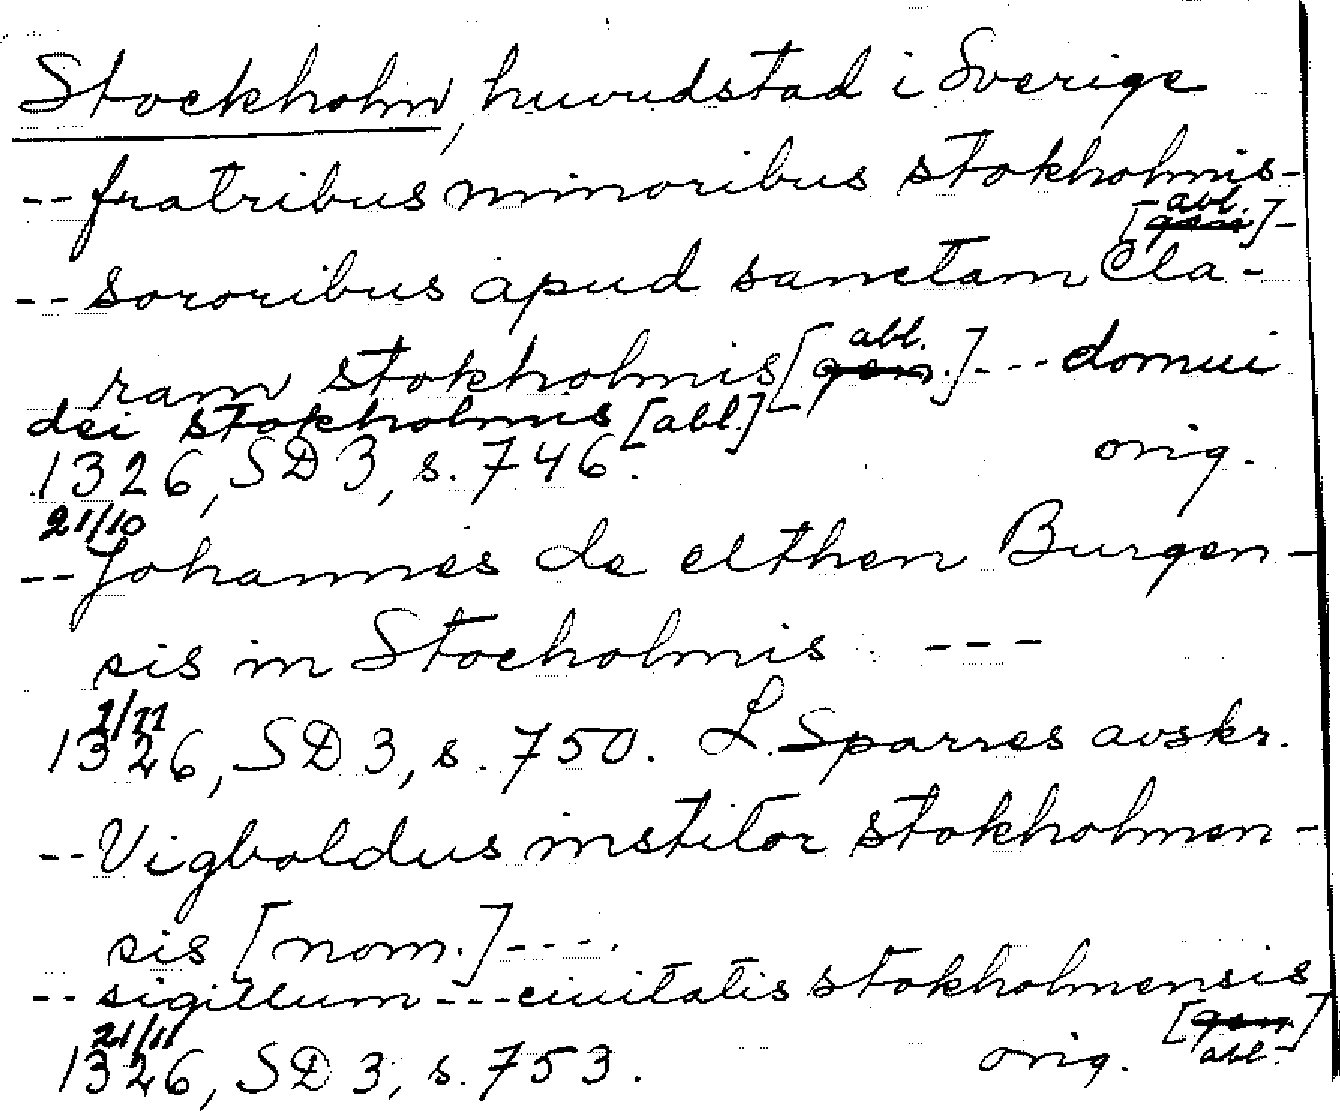 Stockholm, huvudstad i Sverige
-- fratribus minoribus stokholmis -
[abl. gen.] -
-- sororibus apud sanctam Cla-
ram stokholmis [abl. gen.] - -- domui
dei stokholmis [abl.]
1326, SD 3, s. 746. orig.
21/10
-- Johannes de elthen Burgen-
sis in Stocholmis ---
1/11
1326, SD 3, s. 750. L. Sparres avskr.
-- Vigboldus institor stokholmen-
sis [nom.] ----
-- sigillum --- ciuitatis stokholmensis
21/11 [gen. abl.]
1326, SD 3, s. 753. orig.